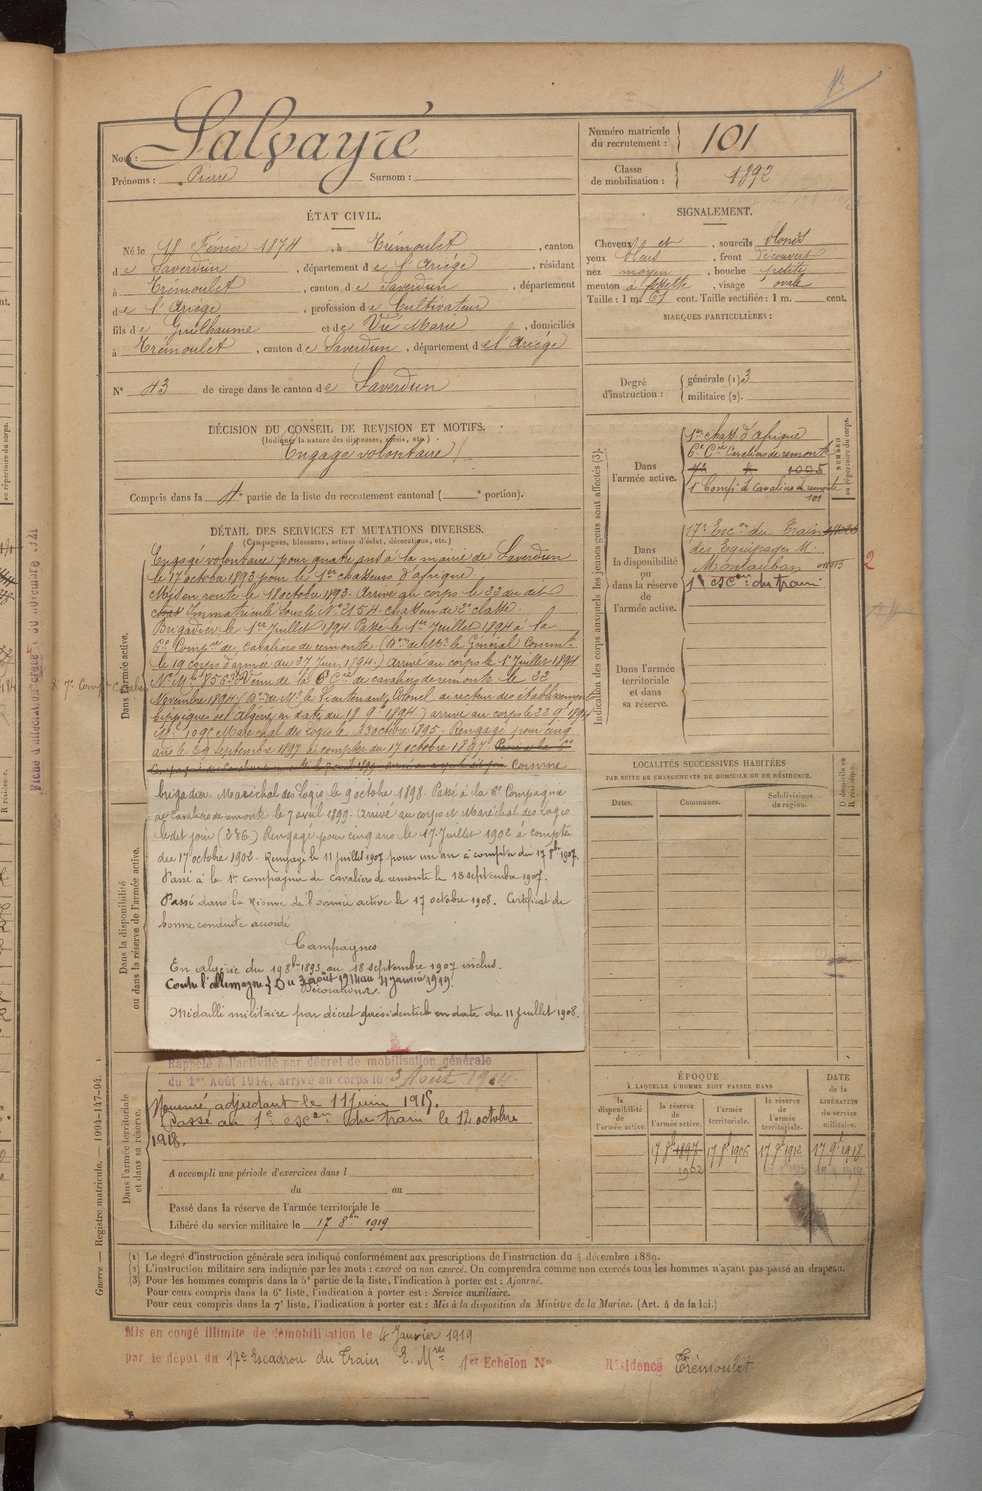 Nom : Salvayré
Prénoms : Pierre Surnom :
Numéro matricule du recrutement : 101
Classe de mobilisation : 1892
ÉTAT CIVIL.
Né le 18 Février 1874, à Trémoulet, canton
de Saverdun, département de l'Ariége, résidant
à Tremoulet, canton de Saverdun, département
de l'Ariége, profession de Cultivateur
fils de Guilhaume et de Vié Marie, domiciliés
à Trémoulet, canton de Saverdun, département de l'Ariége
N° 43 de tirage dans le canton de Saverdun
SIGNALEMENT.
Cheveux et, sourcils blonds
yeux bleus, front découvert
nez moyen, bouche petite
menton à fossette, visage ovale
Taille : 1 m. 61 cent. Taille rectifiée : 1 m. cent.
MARQUES PARTICULIÈRES :
Degré d'instruction : générale (1) 3
militaire (2).
DÉCISION DU CONSEIL DE REVISION ET MOTIFS.
(Indiquer la nature des dispenses, sursis, etc.)
Engagé volontaire
Compris dans la 4e partie de la liste du recrutement cantonal ( e portion).
DÉTAIL DES SERVICES ET MUTATIONS DIVERSES.
(Campagnes, blessures, actions d'éclat, décorations, etc.)
Engagé volontaire pour quatre ans à la mairie de Saverdun
le 17 octobre 1893 pour le 1er chasseurs d'afrique
Mis en route le 18 octobre 1893. Arrivé au corps le 22 du dit
Immatriculé sous le N° 2154. chasseur de 2e classe.
Brigadier le 1er Juillet 1894. Passé le 1er Juillet 1894 à la
6e Compie de Cavaliers de remonte (Don de Mr le Général Commt
le 19 corps d'armée du 27 Juin 1894.) Arrivé au corps le 1er Juillet 1894
Venu de la 6e Cie de cavaliers de remonte le 22
Novembre 1894 (Don de Mr le Lieutenant Colonel directeur des établissemts
hippiques en Algérie en date du 18 9bre 1894.) arrivé au corps le 22 9bre 1894
Maréchal des Logis le 13 octobre 1895. Rengagé pour cinq
ans le 29 septembre 1897 à compter du 17 octobre 1897
Comme
brigadier. Maréchal des Logis le 9 octobre 1898. Passé à la 6e Compagnie
de Cavaliers de remonte le 7 avril 1899. Arrivé au corps et Maréchal des logis
le dit jour (286) Rengagé pour cinq ans le 17 Juillet 1902 à compter
du 17 octobre 1902. Rengagé le 11 juillet 1907 pour un an à compter du 17 8bre 1907.
Passé à la 1re compagnie de Cavaliers de remonte le 18 septembre 1907.
Passé dans la Réserve de l'armée active le 17 octobre 1908. Certificat de
bonne conduite accordé
Campagnes
En algérie du 19 8bre 1893 au 18 septembre 1907 inclus.
Contre l'allemagne Du 3 août 1914 au 4 janvier 1919.
Décorations.
Médaille militaire par décret présidentiel en date du 11 juillet 1908.
Rappelé à l'activité par décret de mobilisation générale
du 1er Août 1914, arrivé au corps le 3 Août 1914.
Nommé adjudant le 11 juin 1915.
Passé au 1e escon du train le 12 octobre
1918.
A accompli une période d'exercices dans l
du au
Passé dans la réserve de l'armée territoriale le
Libéré du service militaire le 17 8bre 1919
Dans l'armée active.
Dans la disponibilité
ou dans la réserve de l'armée active.
Dans l'armée territoriale
et dans sa réserve.
Guerre — Registre matricule. — 1994-147-94.
Indication des corps auxquels les jeunes gens sont affectés (3).
NUMÉRO au répertoire du corps.
Dans l'armée active.
1er chass. d'afrique
6e Cie Cavaliers de remonte
1e Compie de Cavaliers de remonte
101
Dans la disponibilité ou dans la réserve de l'armée active.
17e Escon du Train
des Equipages M.
Montauban
1e escon du train
2
Dans l'armée territoriale et dans sa réserve.
LOCALITÉS SUCCESSIVES HABITÉES
PAR SUITE DE CHANGEMENTS DE DOMICILE OU DE RÉSIDENCE.
Dates. Communes. Subdivisions de région. D domicile ou R résidence.
ÉPOQUE
À LAQUELLE L'HOMME DOIT PASSER DANS
la disponibilité de l'armée active. la réserve de l'armée active. l'armée territoriale. la réserve de l'armée territoriale.
DATE de la LIBÉRATION du service militaire.
17 8bre 1897 17 8bre 1906 17 8bre 1912 17 9bre 1918
1902
(1) Le degré d'instruction générale sera indiqué conformément aux prescriptions de l'instruction du 4 décembre 1889.
(2) L'instruction militaire sera indiquée par les mots : exercé ou non exercé. On comprendra comme non exercés tous les hommes n'ayant pas passé au drapeau.
(3) Pour les hommes compris dans la 5e partie de la liste, l'indication à porter est : Ajourné.
Pour ceux compris dans la 6e liste, l'indication à porter est : Service auxiliaire.
Pour ceux compris dans la 7e liste, l'indication à porter est : Mis à la disposition du Ministre de la Marine. (Art. 4 de la loi.)
Mis en congé illimité de démobilisation le 4 Janvier 1919
par le dépôt du 17e Escadron du Train E. Mres 1er Echelon N° Résidence Trémoulet